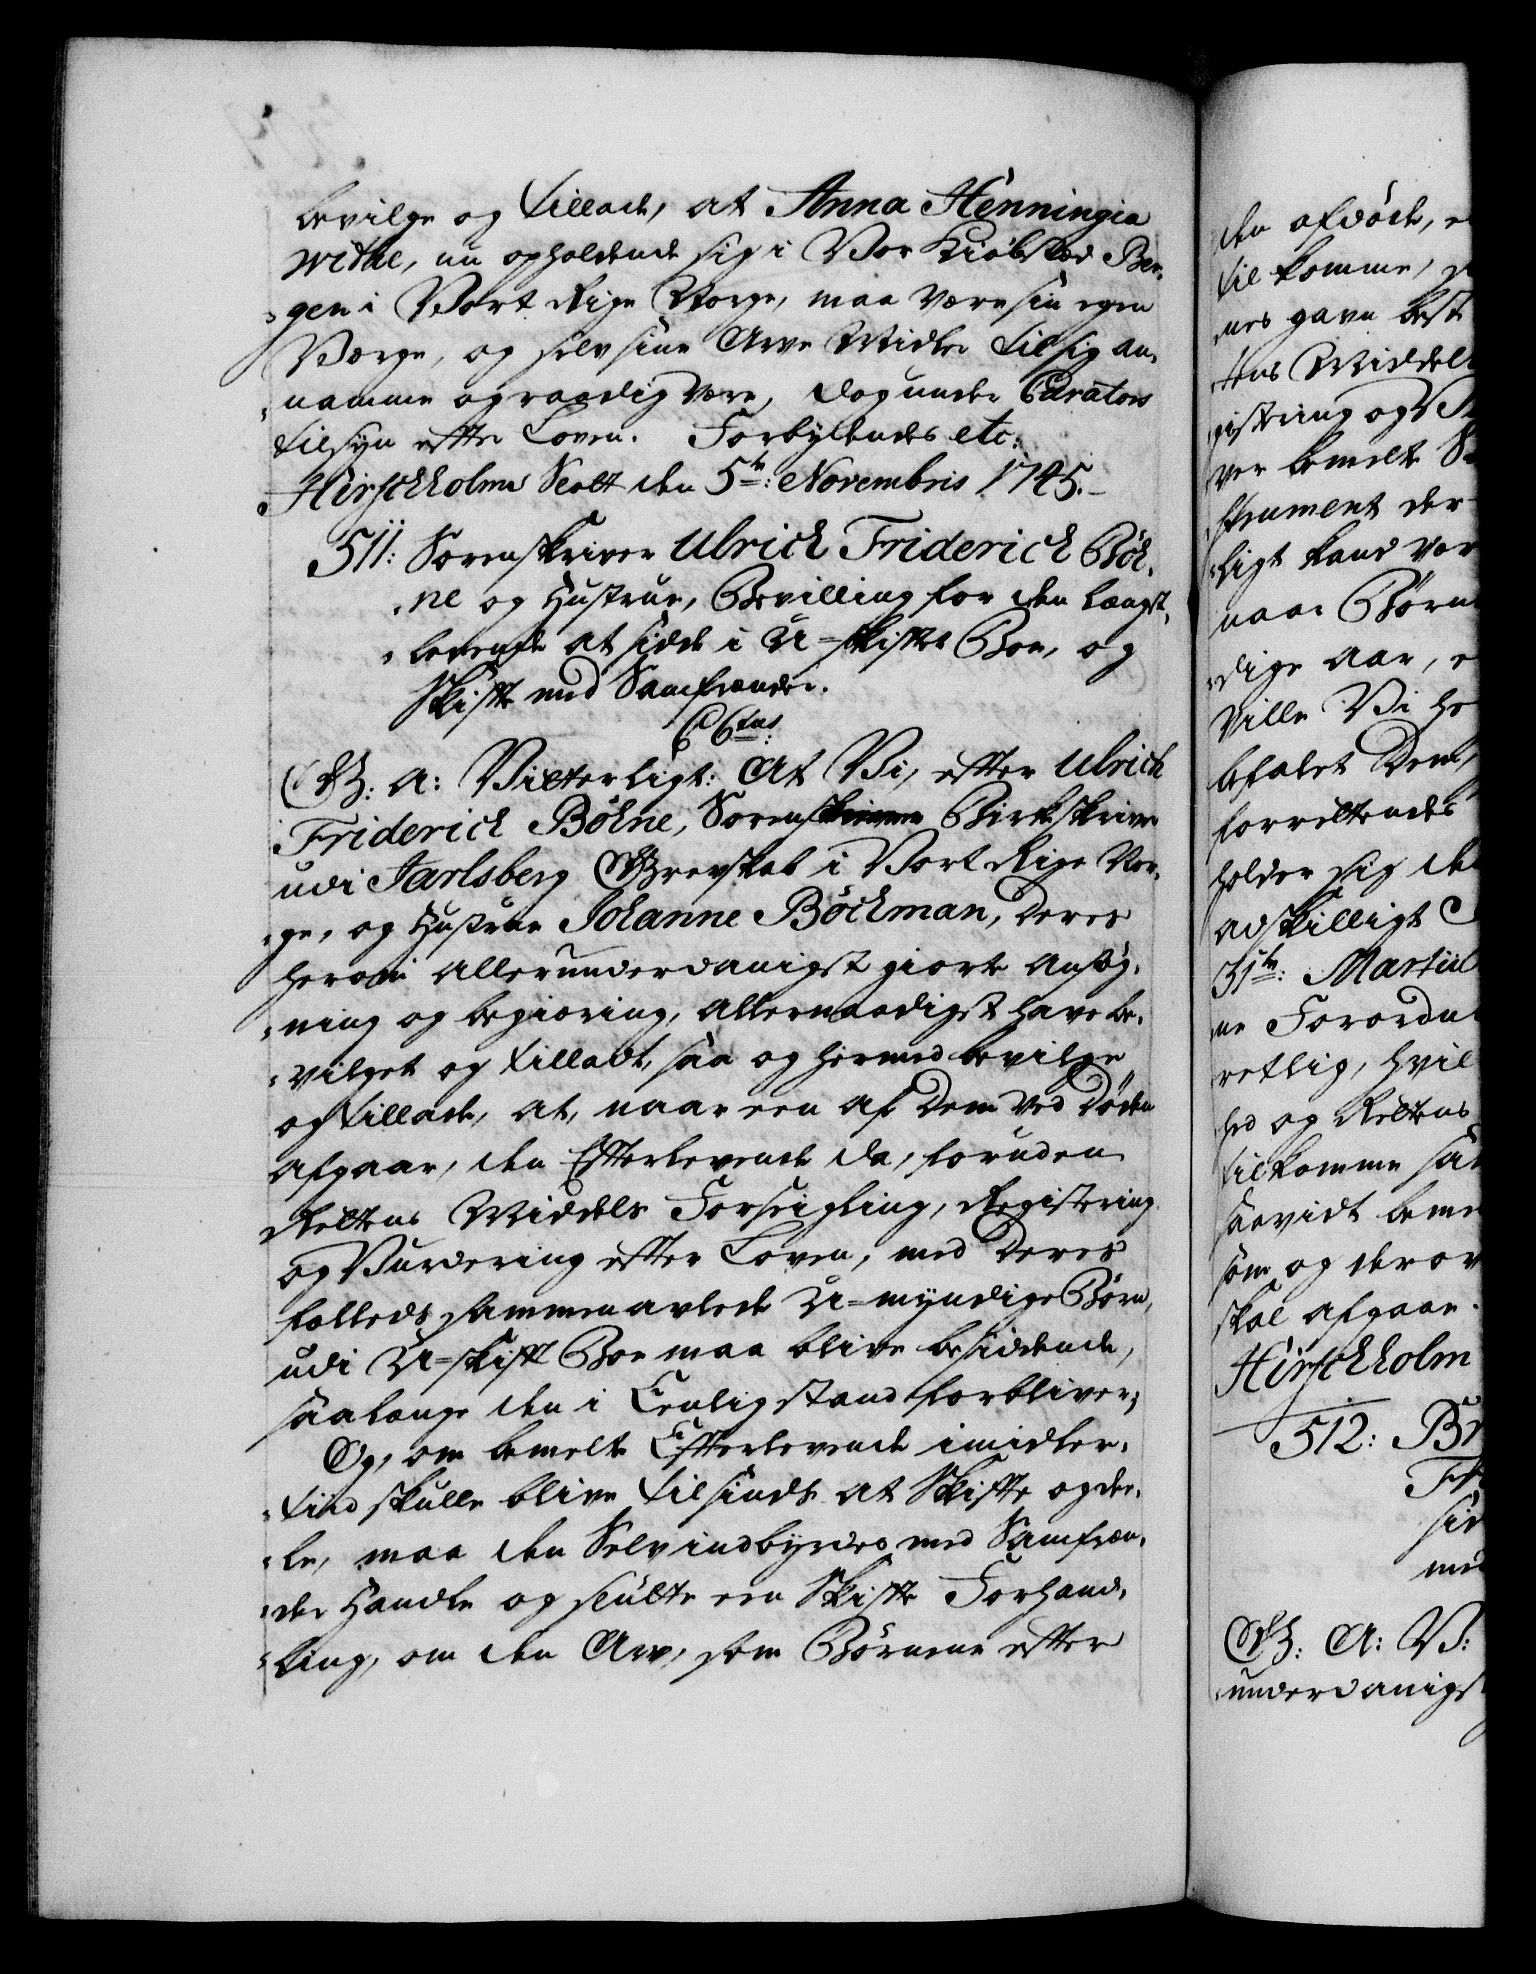 bevilge og tillade, at Anna Henningia
Withe, nu opholdende sig i Vor Kiøbsted Ber-
gen i Vort Rige Norge, maa være sin egen
Værge, og selv sine Arve Midler til sig an-
namme og raadig være, dog under Curators
tilsyn efter Loven. Forbydendes etc:
Hirschholms Slott den 5te: Novembris 1745.
511: Sorenskriver Ulrich Friderich Böh-
ne og Hustrue, Bevilling for den længst-
levende at sidde i U-skiftet Boe, og
Skifte med Samfrænder.
C 6tus:
G: A: Vitterligt: At Vi, efter Ulrich
Friderich Böhne, Sorenskriver Birkskriver
udi Jarlsberg Grevskab i Vort Rige Nor-
ge, og Hustrue Johanne Böckman, deres
herom allerunderdanigst giorte Ansøg-
ning og begiæring, allernaadigst have be-
vilget og tilladt, saa og hermed bevilge
og tillade, at, naar een af dem ved Døden
afgaar, den Efterlevende da, foruden
Rettens Middels Forseigling, Registering
og Vurdering efter Loven, med deres
fælleds sammenavlede U-myndige Børn,
udi U-skift Boe maa blive besiddende,
saalænge den i Eenlig stand forbliver;
Og, om bemelte Efterlevende imidler-
tiid skulle blive tilsinds at Skifte og de-
le, maa den Selv indbyrdes med Samfræn-
der handle og slutte een Skifte Forhand-
ling, om den Arv, som Børnene efter
den afdøde,
til komme,
nes gavn best
tens Middel
gistering og
ver bemelte
strument der
ligt kand vær
naar Børn
dige Aar,
ville Vi he
befalet Dem,
forrettendes
holder sig de
adskilligt
31te: Martii
ne Forordn
retlig, hvil
hed og Rettens
tilkomme
saavidt beme
som og derov
skal afgaar.
Hirschholm
512: Br
Fr
sid
med
G: A: V:
underdanigst